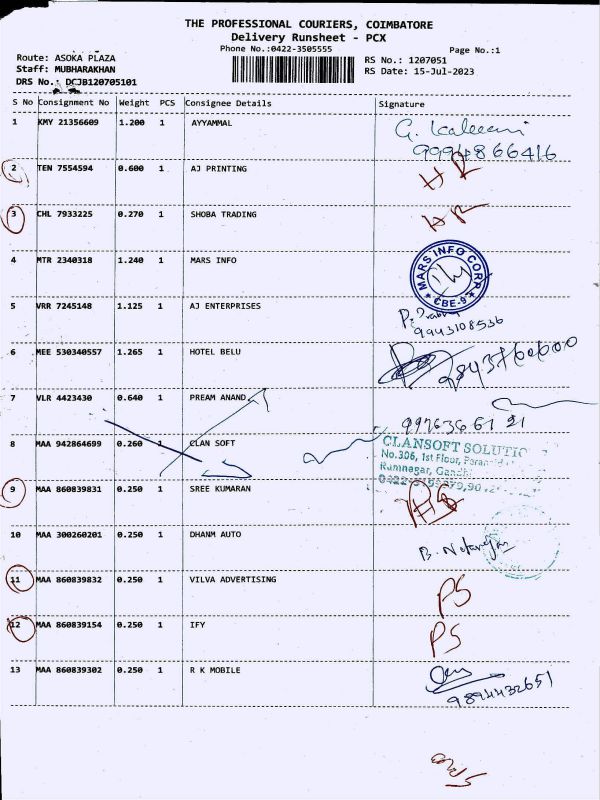 THE PROFESSIONAL COURIERS, COIMBATORE
Delivery Runsheet - PCX
Phone No.:0422-3505555
Page No.:1
Route: ASOKA PLAZA
Staff: MUBHARAKHAN
DRS No.: DCJB120705101
RS No.: 1207051
RS Date: 15-Jul-2023
S No Consignment No Weight PCS Consignee Details Signature
1 KMY 21356609 1.200 1 AYYAMMAL
99948 66416
2 TEN 7554594 0.600 1 AJ PRINTING
3 CHL 7933225 0.270 1 SHOBA TRADING
4 MTR 2340318 1.240 1 MARS INFO
MARS INFO CORP
CBE-9
5 VRR 7245148 1.125 1 AJ ENTERPRISES
9943108536
6 MEE 530340557 1.265 1 HOTEL BELU
7 VLR 4423430 0.640 1 PREAM ANAND
8 MAA 942864699 0.260 1 CLAN SOFT
CLANSOFT
No.306, 1st Floor,
Ramnagar,
9 MAA 860839831 0.250 1 SREE KUMARAN
10 MAA 300260201 0.250 1 DHANM AUTO
11 MAA 860839832 0.250 1 VILVA ADVERTISING
PS
12 MAA 860839154 0.250 1 IFY
PS
13 MAA 860839302 0.250 1 R K MOBILE
9894432651